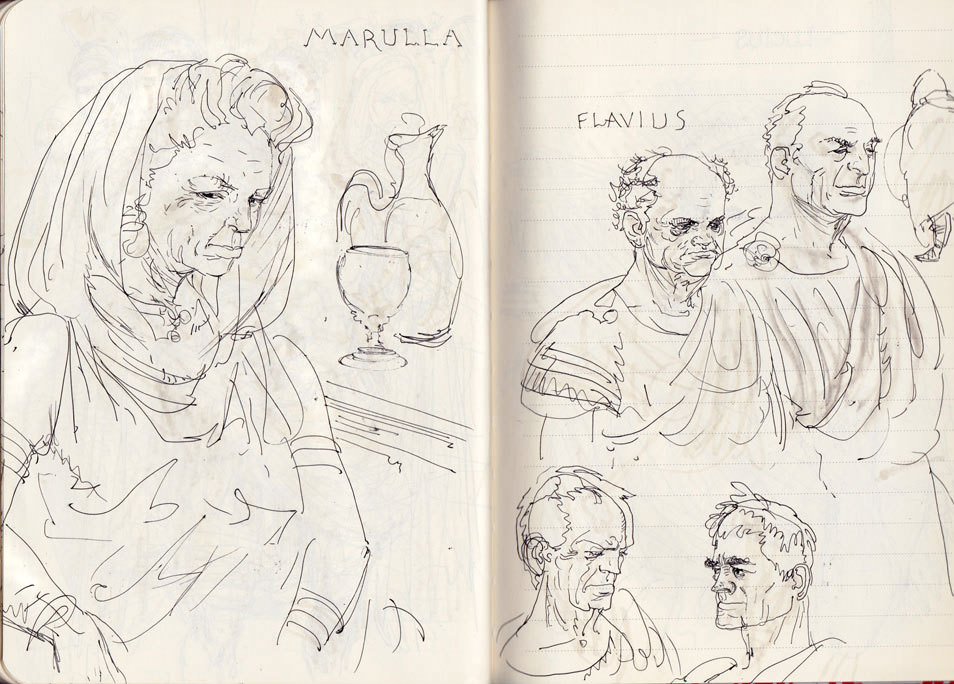 MARULLA
FLAVIUS